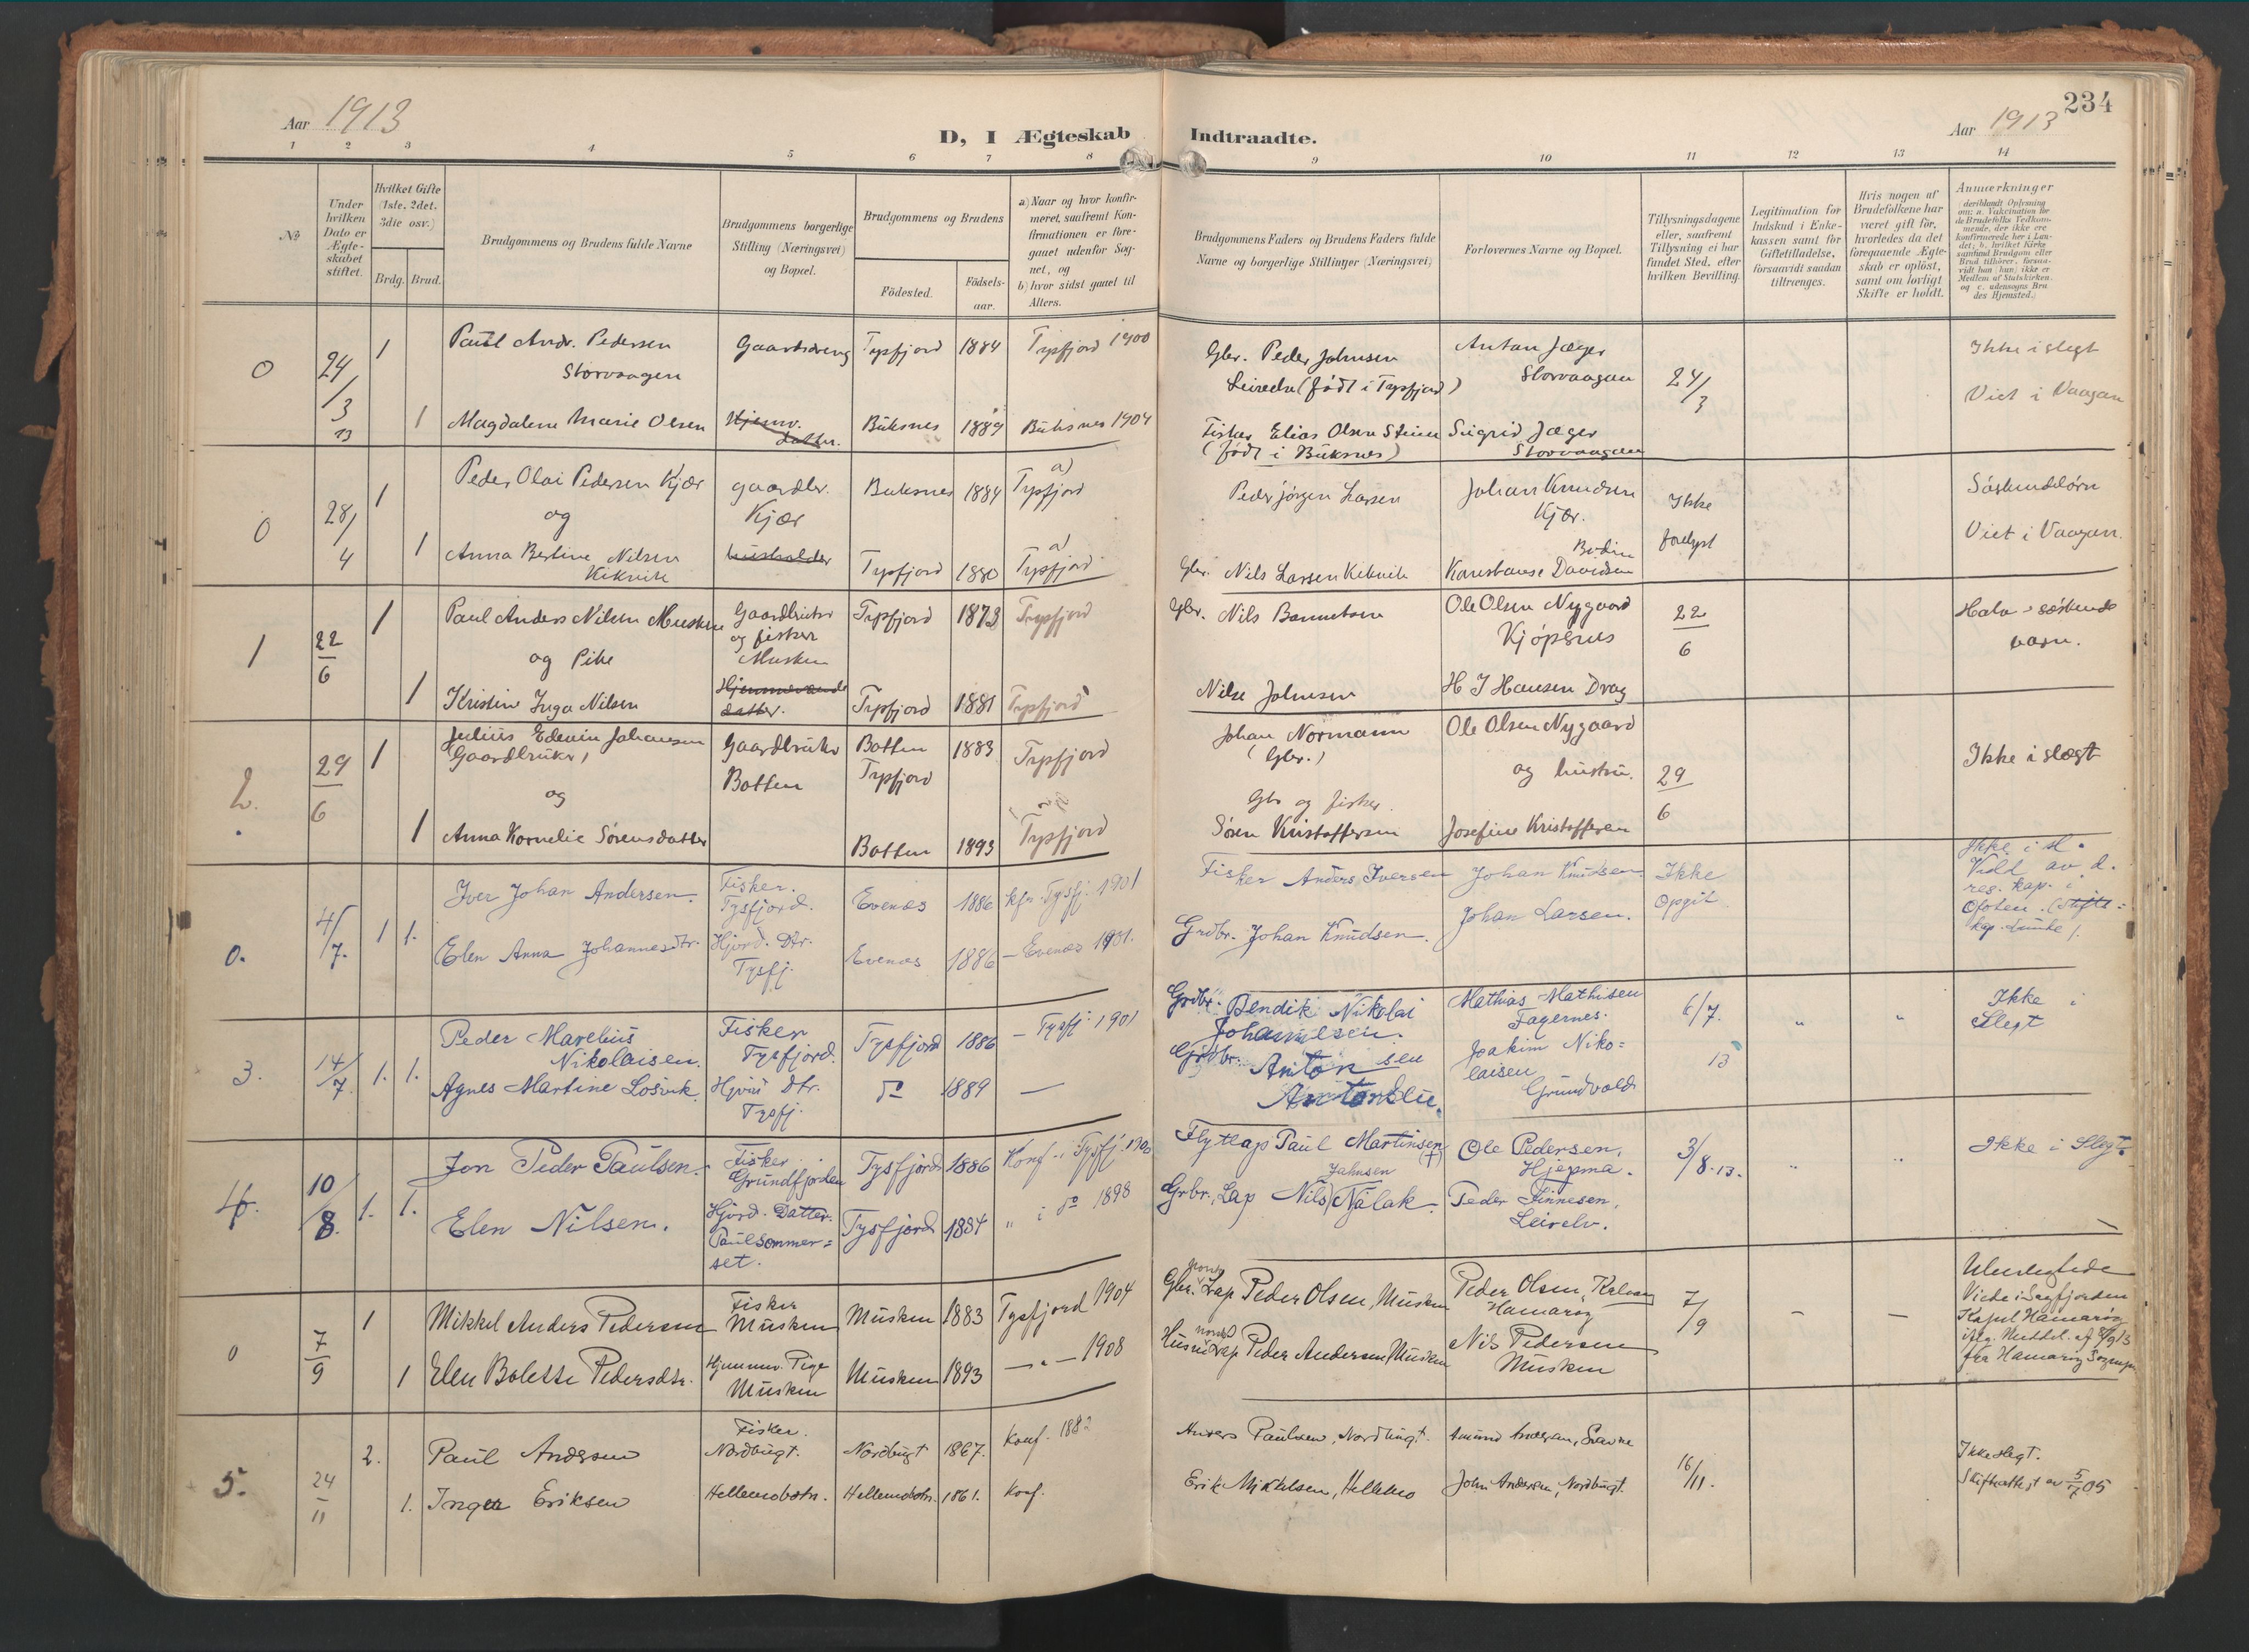 Aar 1913
D, I Ægteskab Indtraadte.
Aar 1913
234
1 2 3 4 5 6 7 8 9 10 11 12 13 14
No
Under hvilken Dato er Ægte-skabet stiftet.
Hvilket Gifte (1ste, 2det, 3die osv.)
Brdg. Brud.
Brudgommens og Brudens fulde Navne
Brudgommens borgerlige Stilling (Næringsvei) og Bopæl.
Brudgommens og Brudens
Födested.
Födsels-aar.
a) Naar og hvor konfir-meret, saafremt Kon-firmationen er fore-gaaet udenfor Sog-net, og
b) hvor sidst gaaet til Alters.
Brudgommens Faders og Brudens Faders fulde Navne og borgerlige Stillinger (Næringsvei)
Forlovernes Navne og Bopæl.
Tillysningsdagene eller, saafremt Tillysning ei har fundet Sted, efter hvilken Bevilling.
Legitimation for Indskud i Enke-kassen samt for Giftetilladelse, forsaavidt saadan tiltrænges.
Hvis nogen af Brudefolkene har været gift för, hvorledes da det foregaaende Ægte-skab er oplöst, samt om lovligt Skifte er holdt.
Anmærkninger
(deriblandt Oplysning om: a. Vakcination for de Brudefolks Vedkom-mende, der ikke ere konfirmerede her i Lan-det; b. hvilket Kirke-samfund Brudgom eller Brud tilhörer, forsaa-vidt han (hun) ikke er Medlem af Statskirken, og c. udensogns Bru-des Hjemsted.)
0 24/3 13 1 Paul Andr. Pedersen Gaardsdreng Tysfjord 1884 Tysfjord 1900 Gbr. Peder Johnsen Anton Jæger 24/3 Ikke i slegt
Storvaagen Leirelv (født i Tysfjord) Storvaagan Viet i Vaagan
1 Magdalene Marie Olsen Hjemv. datter. Buksnes 1889 Buksnes 1904 Fisker Elias Olsen Stine Sigrid Jæger
(født i Buksnes) Storvaagan
0 28/4 1 Peder Olai Pedersen Kjær gaardbr. Buksnes 1884 a) Tysfjord Peder Jørgen Larsen Johan Knudsen Ikke Søskendebørn
og Kjær Kjær. forlyst Viet i Vaagan.
1 Anna Bertine Nilsen husholder Tysfjord 1880 a) Tysfjord Gbr. Nils Larsen Kikvik Konstanse Davidsen Bodin
Kikvik
1 22/6 1 Paul Anders Nilsen Musken Gaardbruker Tysfjord 1873 Tysfjord Gbr. Nils Ole Olsen Nygaard 22/6 Halv-søskende
og Pike og fisker Musken Kjøpsnes barn.
1 Kristine Inga Nilsen Hjemmeværende datter. Tysfjord 1881 Tysfjord Nils Johnsen H J Hansen Drag
2. 29/6 1 Julius Edevin Johansen Gaardbruker Botten 1883 Tysfjord Johan Normann Ole Olsen Nygaard 29/6 Ikke i slægt
(Gaardbruker) Botten Tysfjord (Gbr.) og hustru.
og Gbr og fisker.
1 Anna Kornelie Sørensdatter Botten 1893 Tysfjord Søren Kristoffersen Josefine Kristoffersen
0. 4/7. 1 1. Iver Johan Andersen. Fisker. Tysfjord. Evenæs 1886 kfr. Tysfj. 1901 Fisker Anders Iversen Johan Knudsen. Ikke opgit Ikke i sl.
Vidt av d.
res. kap. i
Ofoten. (Stifts=
kap.
Elen Anna Johannesdtr. Hjvrd. Dtr. Tysfj. Evenæs 1886 — Evenæs 1901. Grdbr. Johan Knudsen. Johan Larsen.
3. 14/7. 1. 1. Peder Marelius Nikolaisen. Fisker Tysfjord. Tysfjord 1886 — Tysfj. 1901 Grdbr. Bendik Nikolai Johannesen. Mathias Mathisen Fagernes. 6/7. 13 „ „ Ikke i Slegt
Agnes Martine Losvik. Hjvrd Dtr. Tysfj. do 1889 — Grdbr. Anton Joakim Niko=
laisen
Grundvold.
4. 10/8. 1. 1. Jon Peder Paulsen. Fisker. Grundfjorden Tysfjord 1886 Konf. Tysfj. 1900 Flytlap Paul Martinsen (+) Ole Pedersen, Hjepma. 3/8.13. „ „ Ikke i Slegt
Elen Nilsen. Hjvrd. Datter. Paulsommer=
set. Tysfjord 1884 „ i do 1898 Grbr. Lap Nils Jahnsen Njalak. Peder Finnesen, Leirelv.
0 7/9 1 Mikkel Anders Pedersen Fisker Musken Musken 1883 Tysfjord 1904 Gbr. norsk Lap Peder Olsen, Musken Peder Olsen, Hamarøy 7/9 — — Ubeslegtede
Viede i Sagfjorden
Kapel Hamarøy
iflg. Meddel. af 8/9 13
fra Hamarøy Sognepr
1 Elen Bolette Pedersdtr. Hjemmv. Pige Musken Musken 1893 —„— 1908 Husm norsk Lap Peder Andersen Musken Nils Pedersen Musken
5. 24/11 2. Paul Andersen Fisker. Nordbugt. Nordbugt 1867. Konf. 1882 Anders Paulsen, Nordbugt. Amund Andersen, 16/11. Ikke slegt.
1. Inger Eriksen Hellemobotn. Hellemobotn. 1861. Konf. Erik Mikkelsen, Hellemo John Andersen, Nordbugt. Skifteattest av 5/7 05